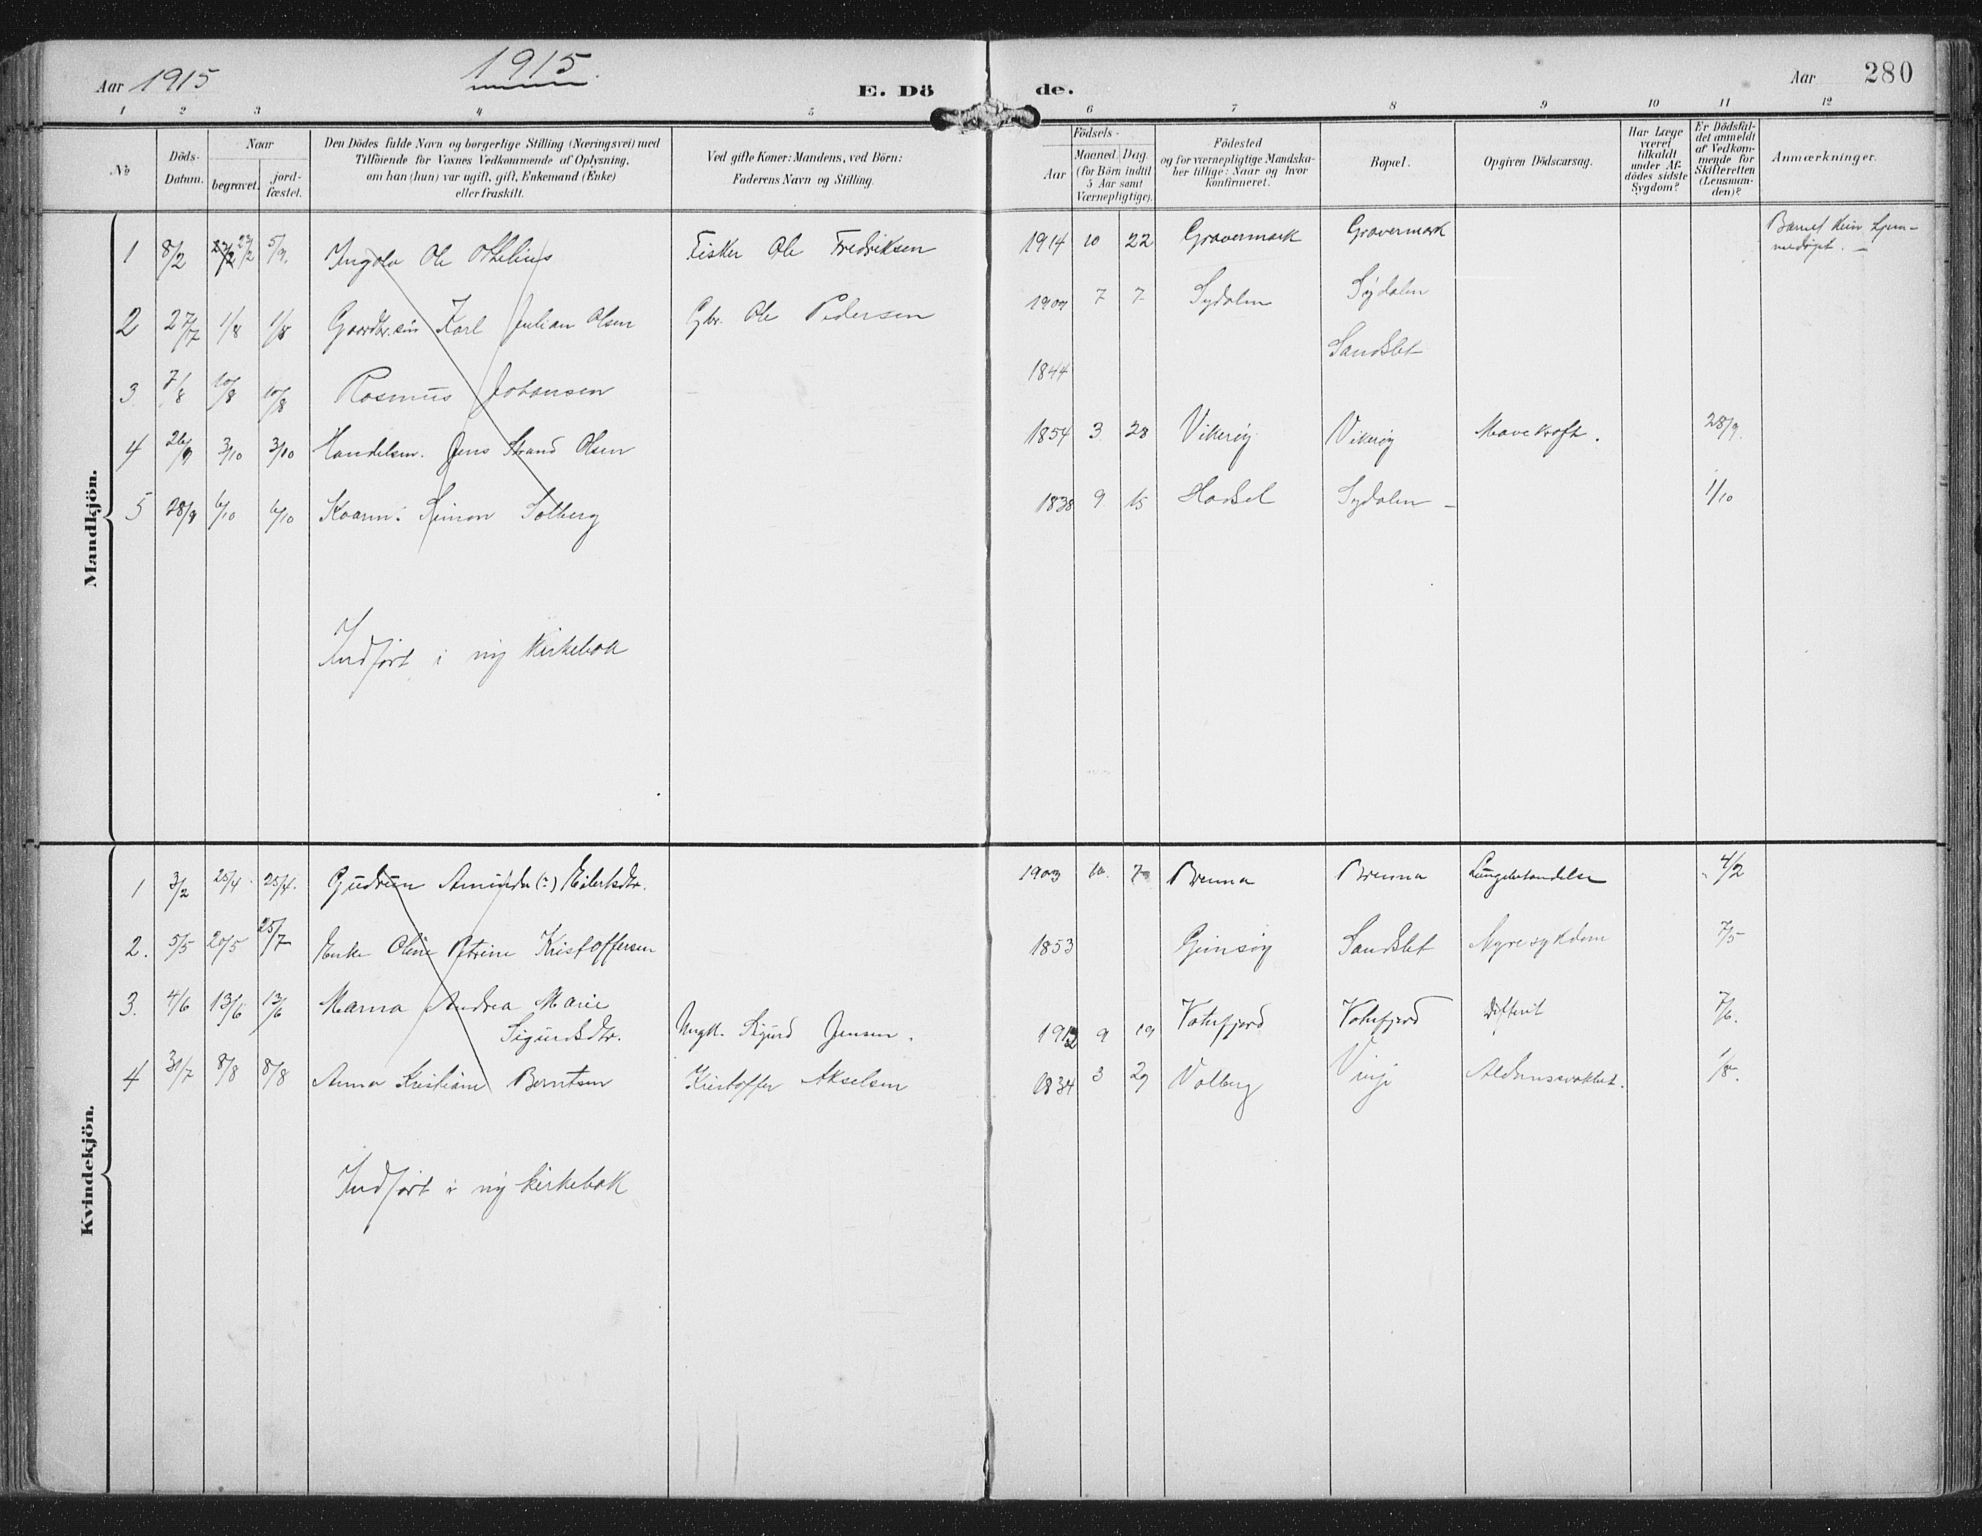 Aar 1915
1915.
E. Dö
de.
Aar
280
1 2 3 4 5 6 7 8 9 10 11 12
No
Döds-
Datum.
Naar
begravet.
jord-
fæstet.
Den Dödes fulde Navn og borgerlige Stilling (Næringsvei) med
Tilföiende for Voxnes Vedkommende af Oplysning,
om han (hun) var ugift, gift, Enkemand (Enke)
eller fraskilt.
Ved gifte Koner: Mandens, ved Börn:
Faderens Navn og Stilling.
Födsels-
Aar
Maaned. Dag.
(for Börn indtil
5 Aar samt
Værnepligtige).
Födested
og for værnepligtige Mandska-
ber tillige: Naar og hvor
konfirmeret.
Bopæl.
Opgiven Dödsaarsag.
Har Læge
været
tilkaldt
under Af-
dödes sidste
Sygdom?
Er Dödsfal-
det anmeldt
af Vedkom-
mende for
Skifteretten
(Lensman-
den)?
Anmærkninger.
Mandkjön.
1 8/2 23/2 5/9. Ingolv Ole Othelius Fisker Ole Fredriksen 1914 10 22 Gravermark Gravermark Barnet kun hjem-
medöpt. -
2 27/7 1/8 1/8 Gaardbr.sön Karl Julian Olsen Gbr. Ole Pedersen 1907 7 7 Sydalen Sydalen
3 7/8 10/8 10/8 Rasmus Johansen 1844 Sandslet
4 26/9 3/10 3/10 Handelsm. Jens Strand Olsen 1854 3 28 Vikeröy Vikeröy Mavekræft. 28/9.
5 28/9 6/10 6/10 Kaarm. Simon Solberg 1838 9 15 Hadsel Sydalen - 1/10
Indfört i ny kirkebok
Kvindekjön.
1 3/2 25/4. 25/4. Gudrun (:) Eilertsdtr. 1903 10. 7 Brenna Brenna 4/2
2. 5/5 20/5 25/7 Enke Oline Petrine Kristoffersen 1853 Gimsöy Sandslet Nyresykdom 7/5
3. 4/6 13/6 13/6 Marna Andrea Marie
Sigurdsdtr. Ungk. Sigurd Jensen. 1912 9 19 Vaterfjord Vaterfjord Difterit 7/6.
4 31/7 8/8 8/8 Anna Kristiane Berntsen Kristoffer Akselsen 1834 3 29 Valberg Vinje Alderdomssvakhet. 1/8.
Indfört i ny kirkebok